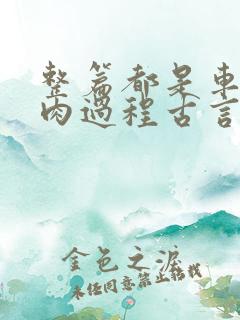 整篇都是车
肉过程古言
金色之泪
未经同意禁止转载